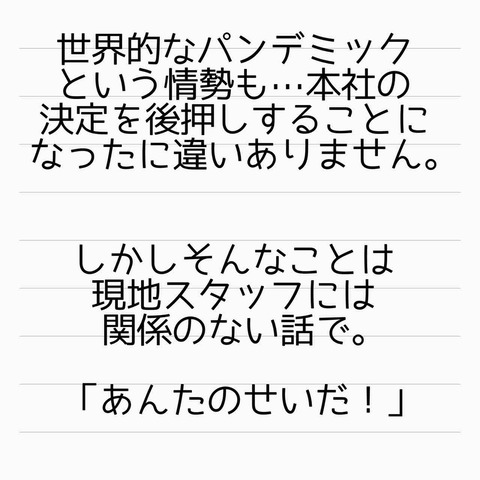 世界的なパンデミック
という情勢も…本社の
決定を後押しすることに
なったに違いありません。
しかしそんなことは
現地スタッフには
関係のない話で。
「あんたのせいだ！」